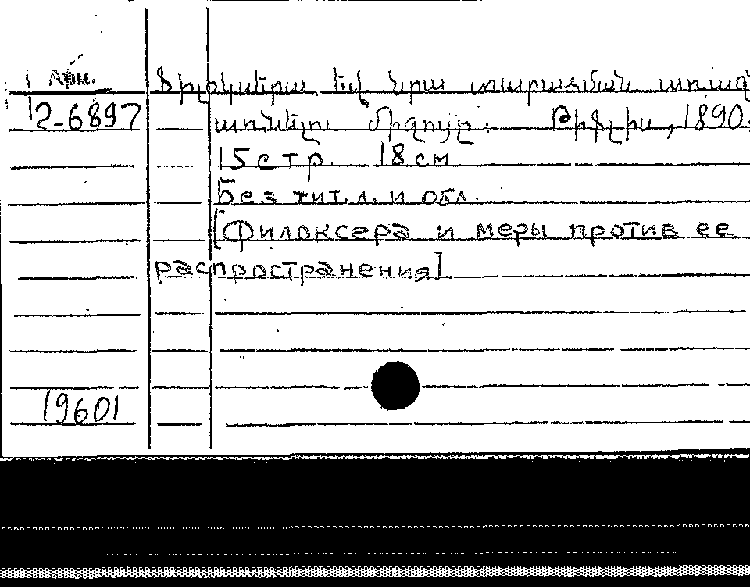 Арм.
2-6897
Ֆիլօկսերա եվ նրա տարածման առաջն
առնելու միջոցը. Թիֆլիս, 1890.
15 стр. 18 см
Без тит. л. и обл.
[Филоксера и меры против ее
распространения]
19601